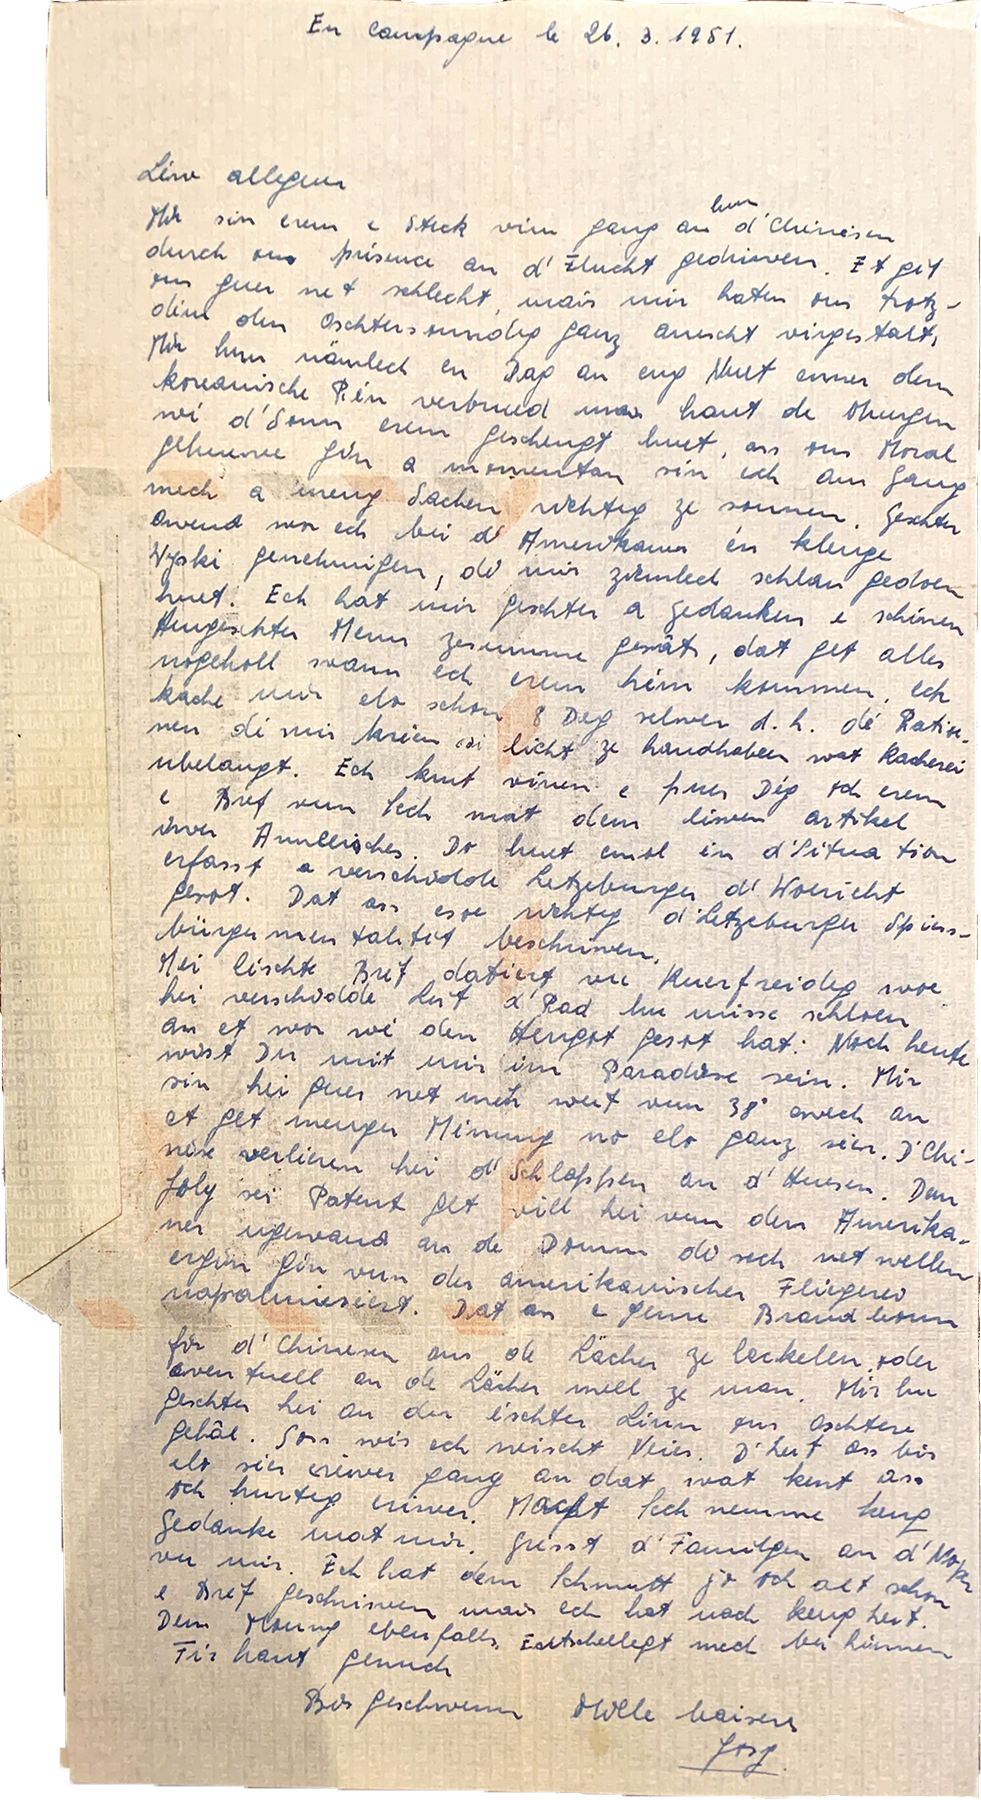 En campagne le 26. 3. 1951.
Léiw allegeur
Mir sin erem e Steck virun gang an hun d'Chinesen
durch ons présence an d'Flucht gedriwen. Et git
ons guer net schlecht, mais mir haten ons trotz-
dém den Oschtersonndeg ganz anescht virgestalt,
Mir hun nämlech en Dag an eng Nuet enner dem
koreanische Rén verbrued mais haut de Muergen
wi d'Sonn erem geschengt huet, ass ons Moral
gehuewe gin a momentan sin ech am gang
mech a meng Sachen richteg ze sonnen. Geschter
owend wor ech bei d'Amerikaner én klenge
Wyski genehmigen, dé mir zimlech schlau gedoen
huet. Ech hat mir geschter a Gedanken e schénen
Menu zesumme gesât, dat get alles
nogeholl wann ech erem heim kommen, ech
kache mir elo schon 8 Deg selwer d.h. dé Ratio-
nen dé mir kréien si licht ze handhaben wat Kacherei
ubelangt. Ech krut virun e puer Dég och erem
e Bréf vum Iech mat dem léiwen artikel
iwer Do huet emol én d'Situation
erfasst a verschidde Letzeburger d'Woericht
gesot. Dat ass esoe richteg d'Letzeburger Spiess-
bürgermentalitét beschriwen.
Mei lischte Bréf datiert vu Kuerfreideg woe
hei verschidde Leit d'Rad hu misse schloen
an et wor wi den Hergot gesot hat: Noch heute
wirst Du mit mir im Paradiese sein. Mir
sin hei guer net méh weit vum 38° ewech an
et get menger Minung no elo ganz séier. D'Chi-
nése verlieren hei d'Schlappen an d'Huesen. Dem
Joly sei Patent get vill hei vun den Amerika-
ner ugewand an de Domm dé sech net wellen
ergin gin vun der amerikanischer Fligerei
napalmiséiert. Dat ass e Brandbomm
fir d'Chinesen aus de Lächer ze lackelen oder
eventuell an de Lächer mell ze man. Mir hu
geschter hei an der éischter Linn ons Oschtere
gehâl. Soss wis ech neischt Neies. D'heit ass bis
elo séier eriwer gang an dat wat kent ass
och hurteg eriwer. Macht Iech nemme keng
Gedanke mat mir. Grisst d'Familjen an d'Noper
vu mir. Ech hat dem Schmitt jo och alt schon
e Bréf geschriwen mais ech hat nach keng heit.
Dem Moung ebenfalls Entschellegt mech bei hinnen
Fir haut genuch
Bis geschwenn Mille baisers
Josy